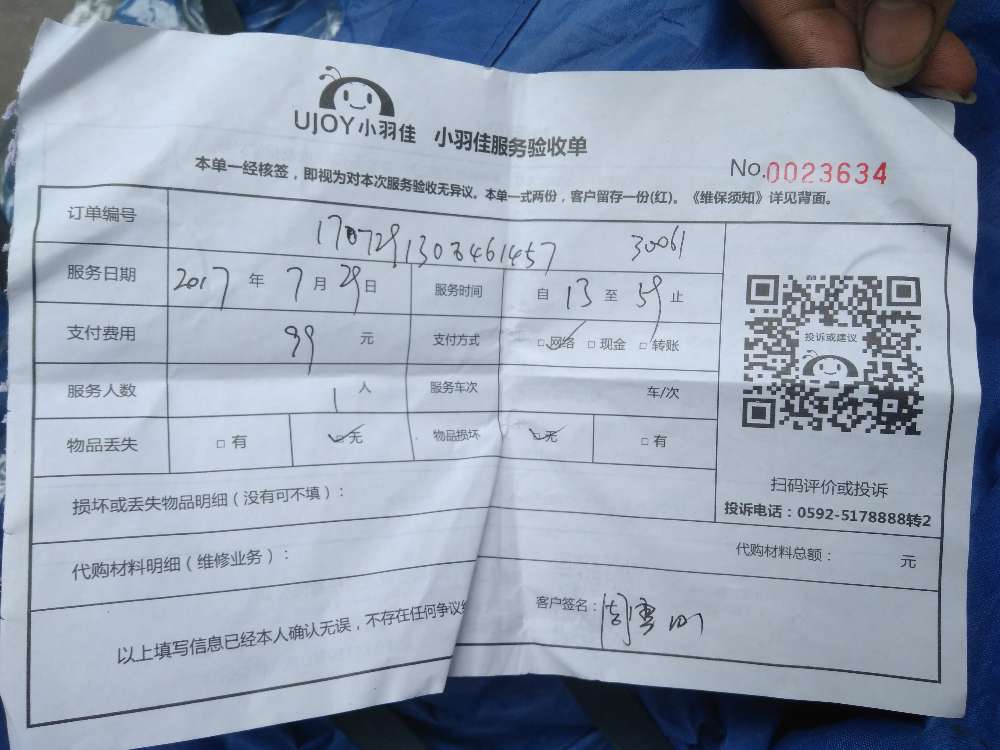 UJOY小羽佳 小羽佳服务验收单
No.0023634
本单一经核签，即视为对本次服务验收无异议。本单一式两份，客户留存一份(红)。《维保须知》详见背面。
订单编号 1707291303461457 30061
服务日期 2017 年 7 月 29 日 服务时间 自 13 至 59 止
支付费用 99 元 支付方式 □网络 □现金 □转账
服务人数 1 人 服务车次 车/次
物品丢失 □有 □无 物品损坏 □无 □有
投诉或建议
扫码评价或投诉
投诉电话：0592-5178888转2
损坏或丢失物品明细（没有可不填）：
代购材料明细（维修业务）： 代购材料总额： 元
以上填写信息已经本人确认无误，不存在任何争议 客户签名：